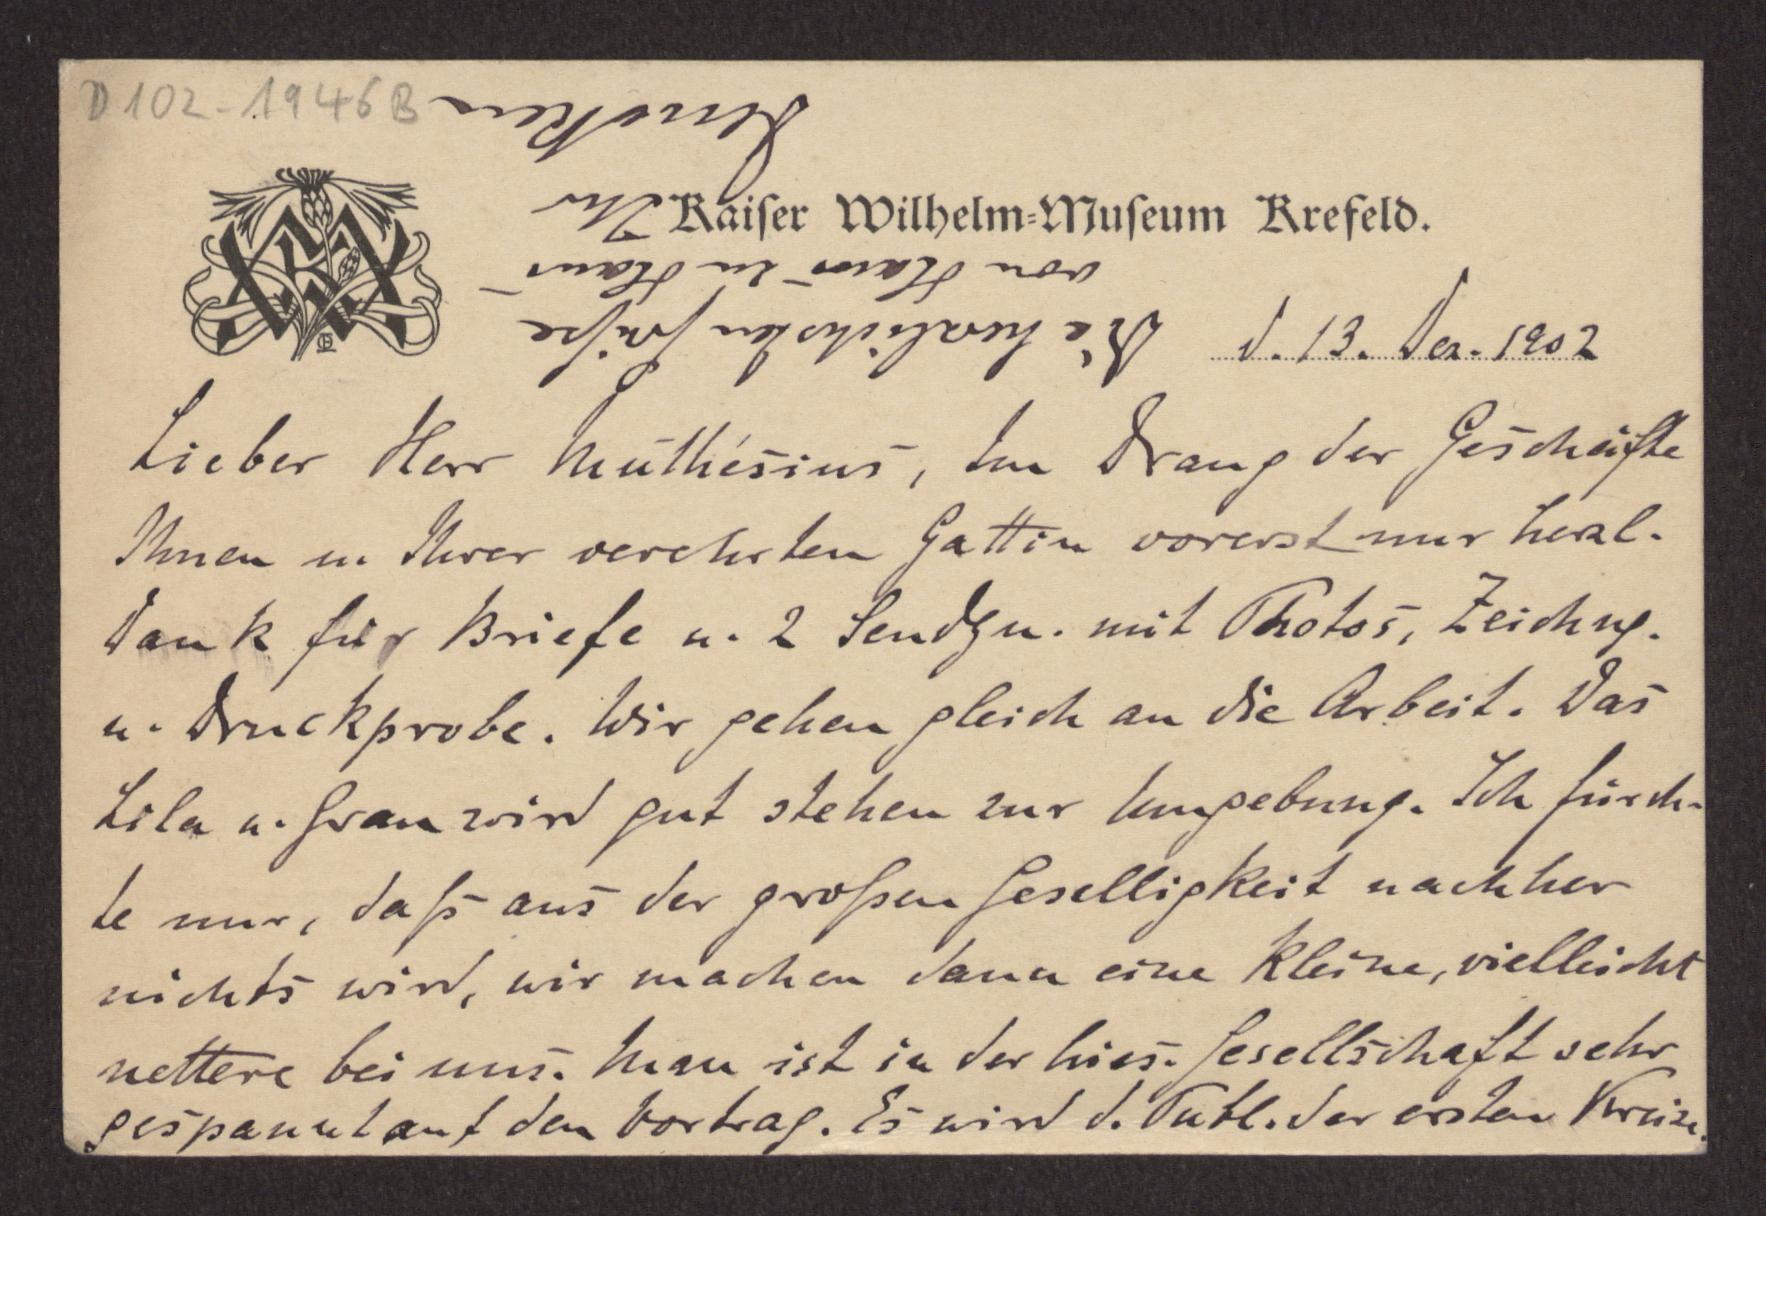 D 102-1946 B
Kaiser Wilhelm-Museum Krefeld.
d. 13. Dez. 1902
Lieber Herr Muthesius, Im Drang der Geschäfte
Ihnen u. Ihrer verehrten Gattin vorerst nur herzl.
Dank für Briefe u. 2 Sendgn. mit Photos, Zeichng.
u. Druckprobe. Wir gehen gleich an die Arbeit. Das
Lila u. Grau wird gut stehen zur Umgebung. Ich fürch-
te nur, daß aus der großen Geselligkeit nachher
nichts wird, wir machen dann eine kleine, vielleicht
nettere bei uns. Man ist in der hies. Gesellschaft sehr
gespannt auf den Vortrag. Es wird d. Publ. der ersten Kreise.
Die herzlichsten Grüße
von Haus zu Haus
Ihr
Deneken